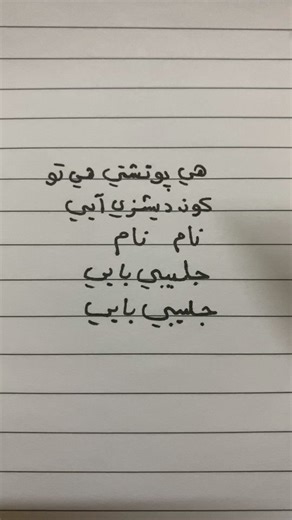 هي پوتشتي هي تو
كون ديشزي آيي
نام نام
جليبي بايي
جليبي بايي